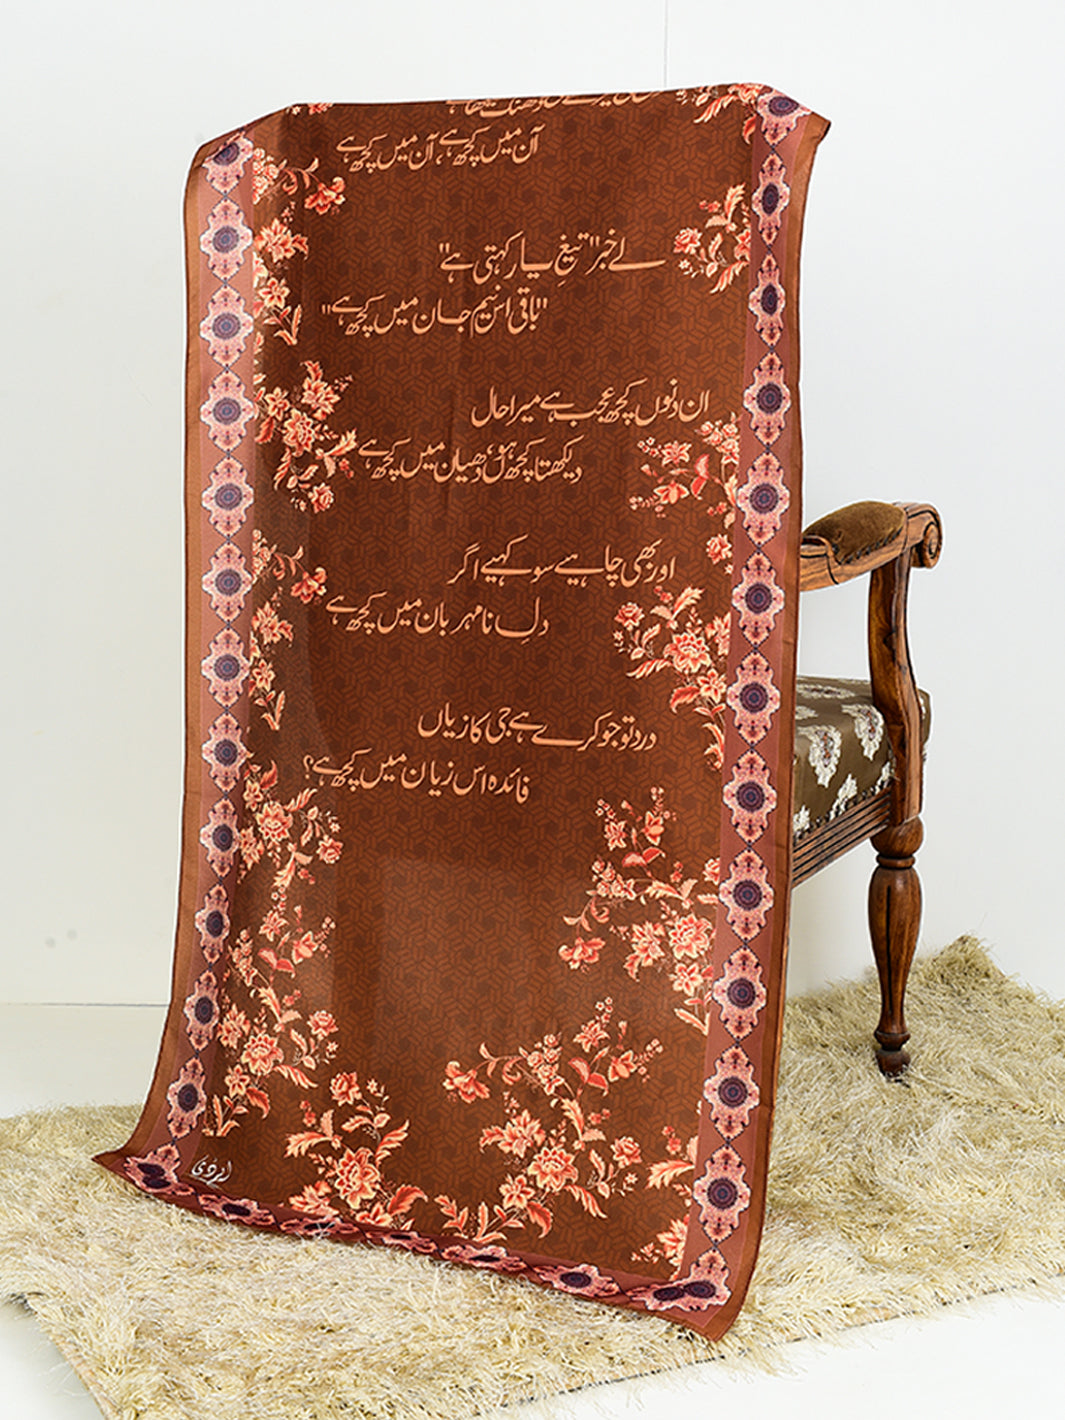 آن میں کچھ ہے، آن میں کچھ ہے
لے خبر "تیغِ یار کہتی ہے"
"باقی اس نیم جان میں کچھ ہے"
ان دنوں کچھ عجب ہے میرا حال
دیکھتا کچھ ہوں، دھیان میں کچھ ہے
اور بھی چاہیے سو کہیے اگر
دلِ نامہربان میں کچھ ہے
درد تو جو کرے ہے جی کا زیاں
فائدہ اس زیان میں کچھ ہے؟